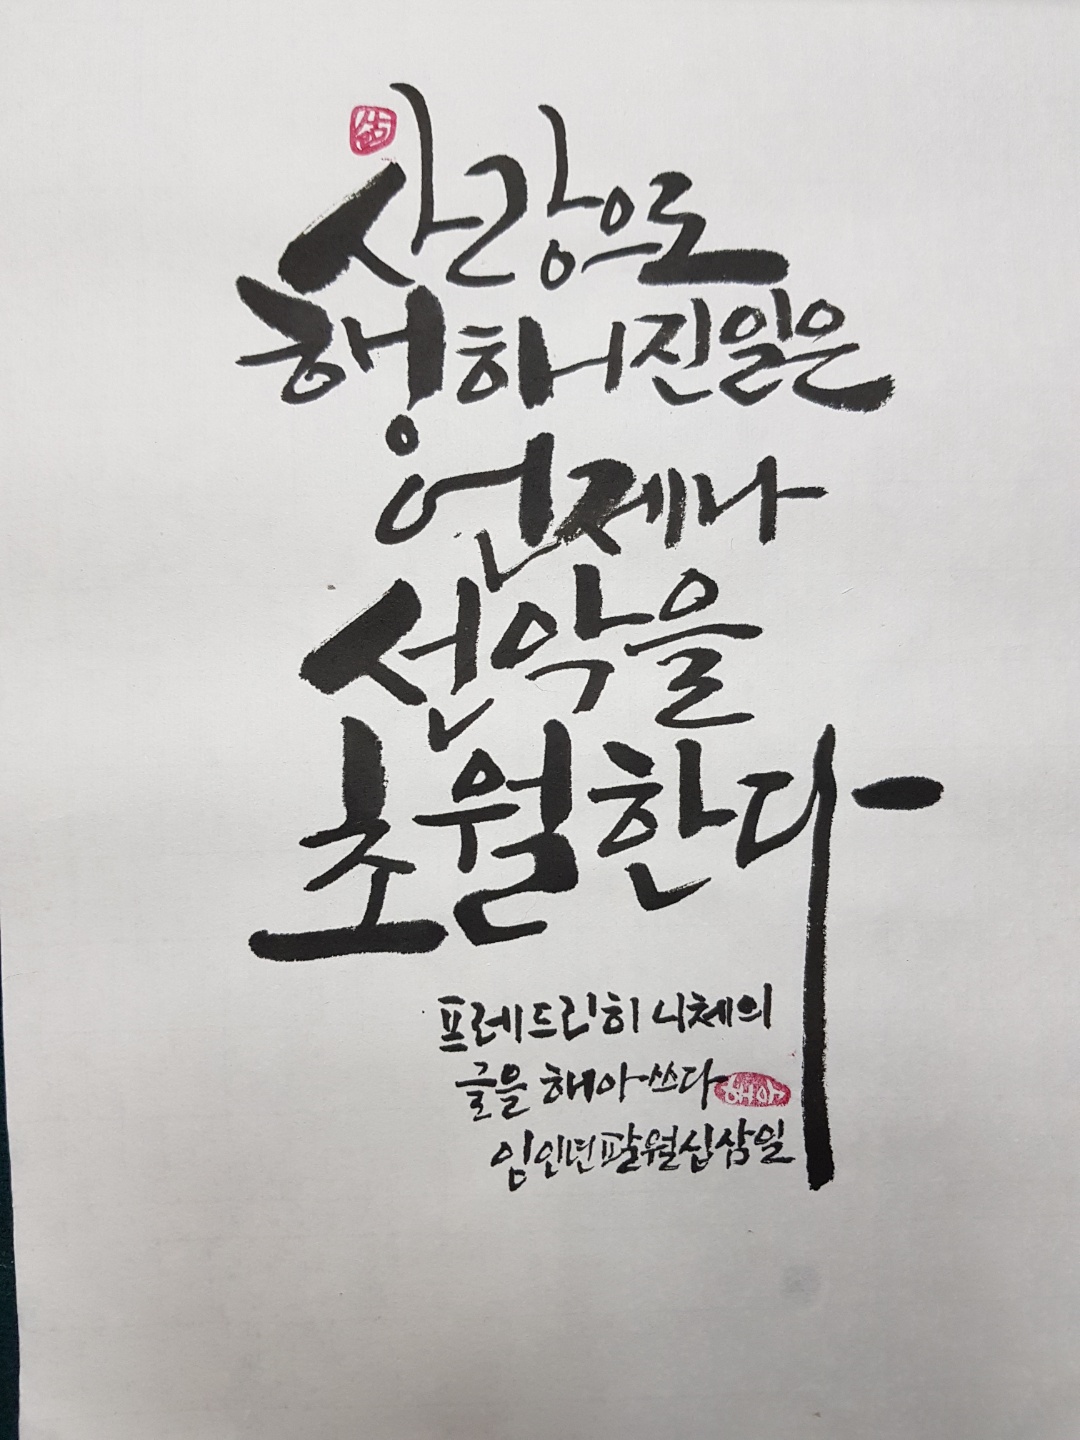 사랑으로
행하여진 일은
언제나
선악을
초월한다
프레드리히 니체의
글을 해아 쓰다
해아
임인년 팔월 십삼일